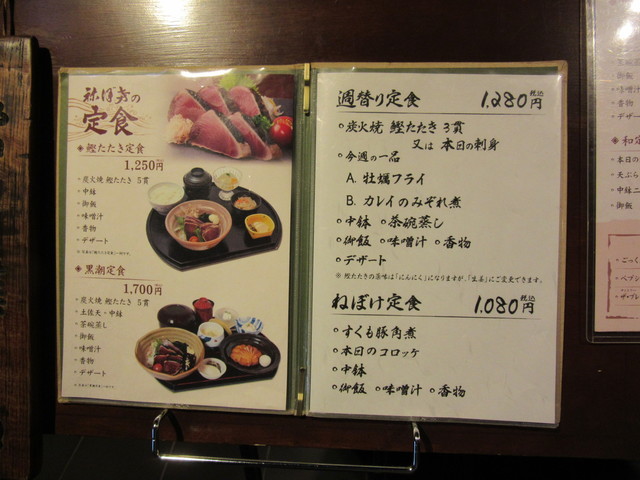 祢保希の
定食
◈鰹たたき定食
1,250円
◦炭火焼 鰹たたき 5貫
◦中鉢
◦御飯
◦味噌汁
◦香物
◦デザート
◈黒潮定食
1,700円
◦炭火焼 鰹たたき 5貫
◦土佐天・中鉢
◦茶碗蒸し
◦御飯
◦味噌汁
◦香物
◦デザート
週替り定食 1,280円 税込
◦炭火焼 鰹たたき 3貫
又は 本日の刺身
◦今週の一品
A. 牡蠣フライ
B. カレイのみぞれ煮
◦中鉢 ◦茶碗蒸し
◦御飯 ◦味噌汁 ◦香物
◦デザート
※ 鰹たたきの薬味は「にんにく」になりますが、「生姜」にご変更できます。
ねぼけ定食 1,080円 税込
◦すくも豚角煮
◦本日のコロッケ
◦中鉢
◦御飯 ◦味噌汁 ◦香物
◦御飯
◦味噌汁
◦香物
◦デザー
◈和定
◦本日の
◦天ぷら
◦中鉢二
◦御飯
◦ごっく
◦ペプシ